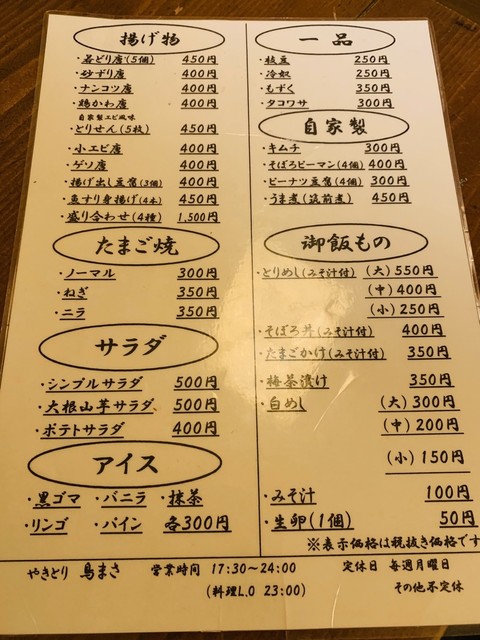 揚げ物
・若どり唐(5個) 450円
・砂ずり唐 400円
・ナンコツ唐 400円
・鶏かわ唐 400円
自家製エビ風味
・とりせん(5枚) 450円
・小エビ唐 400円
・ゲソ唐 400円
・揚げ出し豆腐(3個) 400円
・魚すり身揚げ(4本) 450円
・盛り合わせ(4種) 1,500円
たまご焼
・ノーマル 300円
・ねぎ 350円
・ニラ 350円
サラダ
・シンプルサラダ 500円
・大根山芋サラダ 500円
・ポテトサラダ 400円
アイス
・黒ゴマ ・バニラ ・抹茶
・リンゴ ・パイン 各300円
一品
・枝豆 250円
・冷奴 250円
・もずく 350円
・タコワサ 300円
自家製
・キムチ 300円
・そぼろピーマン(4個) 400円
・ピーナツ豆腐(4個) 300円
・うま煮(筑前煮) 450円
御飯もの
・とりめし(みそ汁付) (大)550円
(中)400円
(小)250円
・そぼろ丼(みそ汁付) 400円
・たまごかけ(みそ汁付) 350円
・梅茶漬け 350円
・白めし (大)300円
(中)200円
(小)150円
・みそ汁 100円
・生卵(1個) 50円
※表示価格は税抜き価格です
やきとり 鳥まさ 営業時間 17:30~24:00 定休日 毎週月曜日
(料理L.O 23:00) その他不定休